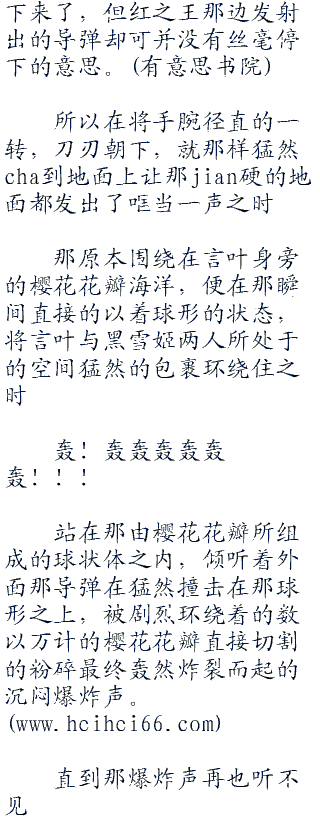 下来了，但红之王那边发射
出的导弹却可并没有丝毫停
下的意思。(有意思书院)
所以在将手腕径直的一
转，刀刃朝下，就那样猛然
cha到地面上让那jian硬的地
面都发出了哐当一声之时
那原本围绕在言叶身旁
的樱花花瓣海洋，便在那瞬
间直接的以着球形的状态，
将言叶与黑雪姬两人所处于
的空间猛然的包裹环绕住之
时
轰！轰轰轰轰轰
轰！！！
站在那由樱花花瓣所组
成的球状体之内，倾听着外
面那导弹在猛然撞击在那球
形之上，被剧烈环绕着的数
以万计的樱花花瓣直接切割
的粉碎最终轰然炸裂而起的
沉闷爆炸声。
(www.hcihci66.com)
直到那爆炸声再也听不
见